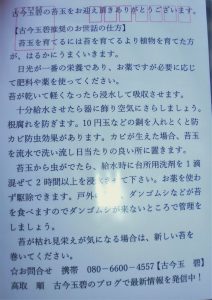 古今玉碧の苔玉をお迎え頂きありがとうございます。
【古今玉碧推奨のお世話の仕方】
苔玉を育てるには苔を育てるより植物を育てた方
が、はるかにうまくいきます。
日光が一番の栄養であり、お薬ですが必要に応じ
て肥料や薬を使ってください。
苔が乾いて軽くなったら浸水して吸収させます。
十分給水させたら器に飾り空気にさらしましょう。
根腐れを防ぎます。10円玉などの銅を入れとくと防
カビ防虫効果があります。カビが生えた場合、苔玉
を流水で洗い流し日当たりの良い所に置きます。
苔玉から虫がでたら、給水時に台所用洗剤を1滴
混ぜて2時間以上を浸 て下さい。お薬を使わ
ず駆除できます。戸外 ダンゴムシなどが苔
を食べますのでダンゴムシが来ないところで管理を
しましょう。
苔が枯れ見栄えが気になる場合は、新しい苔を
巻いてください。
☆お問合せ 携帯 080-6600-4557【古今玉碧】
高取 順 古今玉碧のブログで最新情報を発信中！